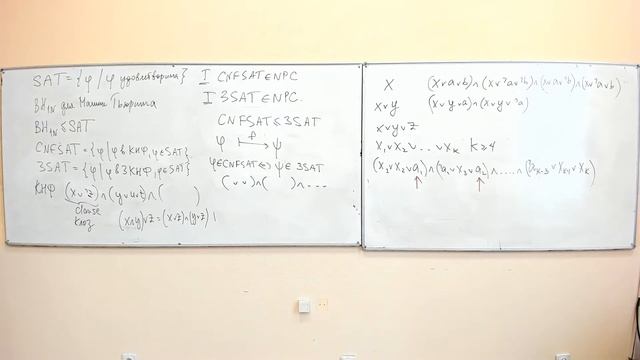 SAT = {φ | φ удовлетворим}
BH₁ₙ для Машин Тьюринга
BH₁ₙ ≤ SAT
CNFSAT = {φ | φ в КНФ, φ ∈ SAT}
3SAT = {φ | φ в 3КНФ, φ ∈ SAT}
КНФ (x∨¬z)∧(y∨u∨t)∧( )
clause
клоз
(x∧y)∨z = (x∨z)∧(y∨z)
I CNFSAT ∈ NPC
I 3SAT ∈ NPC.
CNFSAT ≤ 3SAT
φ f ↦ ψ
φ ∈ CNFSAT ⇔ ψ ∈ 3SAT
( ∨ ∨ )∧( )∧...
x (x∨a∨b)∧(x∨¬a∨b)∧(x∨a∨¬b)∧(x∨¬a∨¬b)
x∨y (x∨y∨a)∧(x∨y∨¬a)
x∨y∨z
x₁∨x₂∨...∨xₖ k≥4
(x₁∨x₂∨a₁)∧(¬a₁∨x₃∨a₂)∧.....∧(¬aₖ₋₃∨xₖ₋₁∨xₖ)